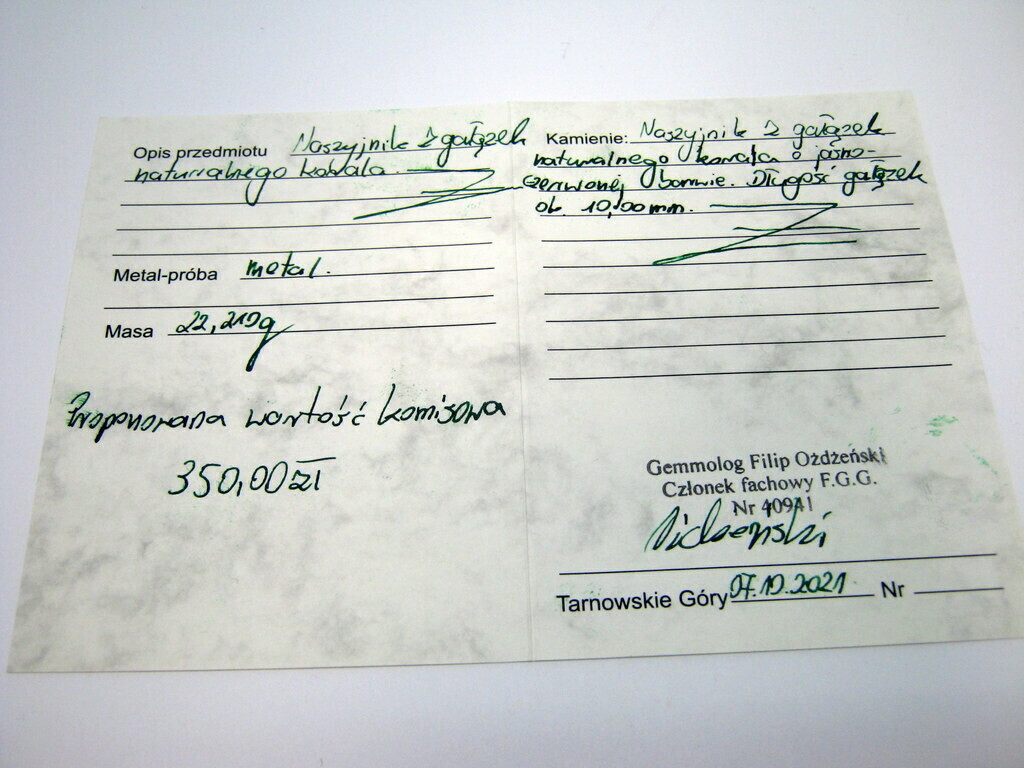 Opis przedmiotu Naszyjnik z gałązek
naturalnego korala.
Metal-próba metal.
Masa 22,210g
Proponowana wartość komisowa
350,00zł
Kamienie: Naszyjnik z gałązek
naturalnego korala o jasno-
czerwonej barwie. Długość gałązek
ok. 10,00mm.
Gemmolog Filip Ożdżeński
Członek fachowy F.G.G.
Nr 40941
Tarnowskie Góry 07.10.2021 Nr